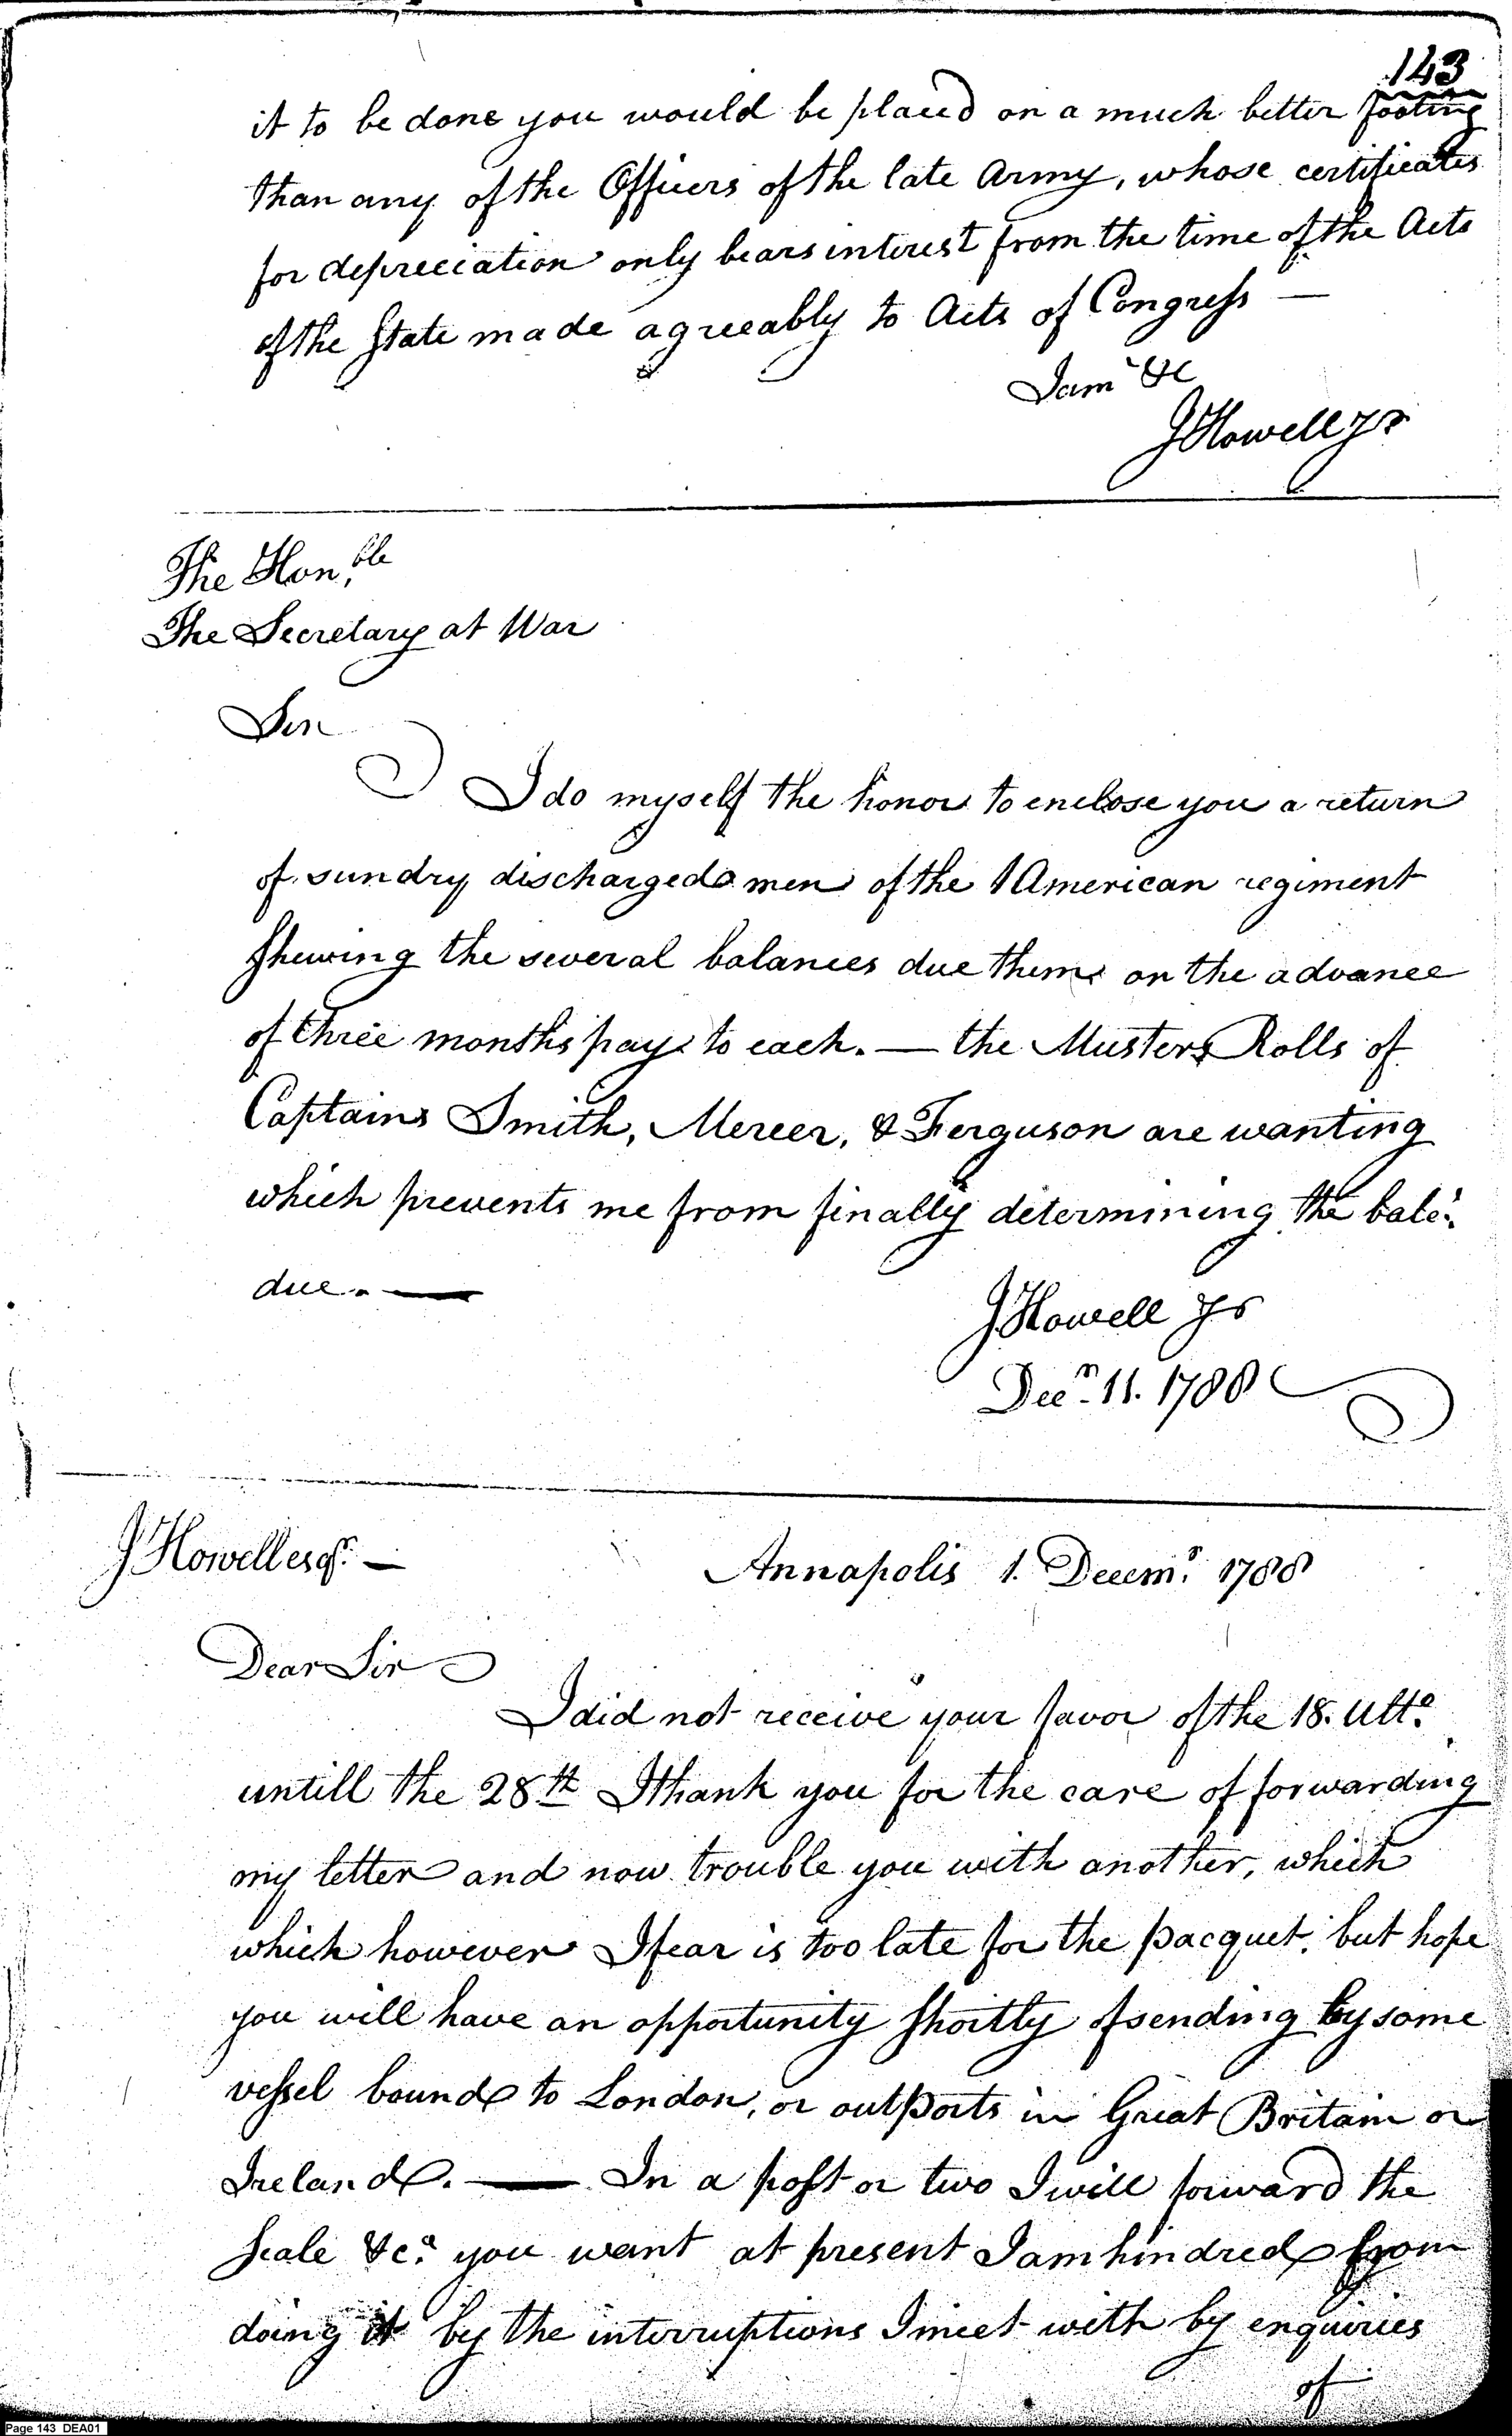 143
it to be done you would be placed on a much better footing
than any of the Officers of the late Army, whose certificates
for depreciation only bears interest from the time of the Acts
of the State made agreeably to Acts of Congress —
I am &c
J Howell Jr
The Hon.ble
The Secretary at War
Sir
I do myself the honor to enclose you a return
of sundry discharged men of the American regiment
shewing the several balances due them on the advance
of three months pay to each. — the Musters Rolls of
Captains Smith, Mercer, & Ferguson are wanting
which prevents me from finally determining the bale.
due. —
J Howell Jr
Decr. 11. 1788
J Howell esqr. —
Annapolis 1. Decemr. 1788
Dear Sir
I did not receive your favor of the 18. Ulto.
untill the 28th I thank you for the care of forwarding
my letter and now trouble you with another, which
which however I fear is too late for the pacquet, but hope
you will have an opportunity shortly of sending by some
vessel bound to London, or outports in Great Britain or
Ireland. — In a post or two I will forward the
scale &ca. you want at present I am hindred from
doing it by the interruptions I meet with by enquiries
of
Page 143 DEA01